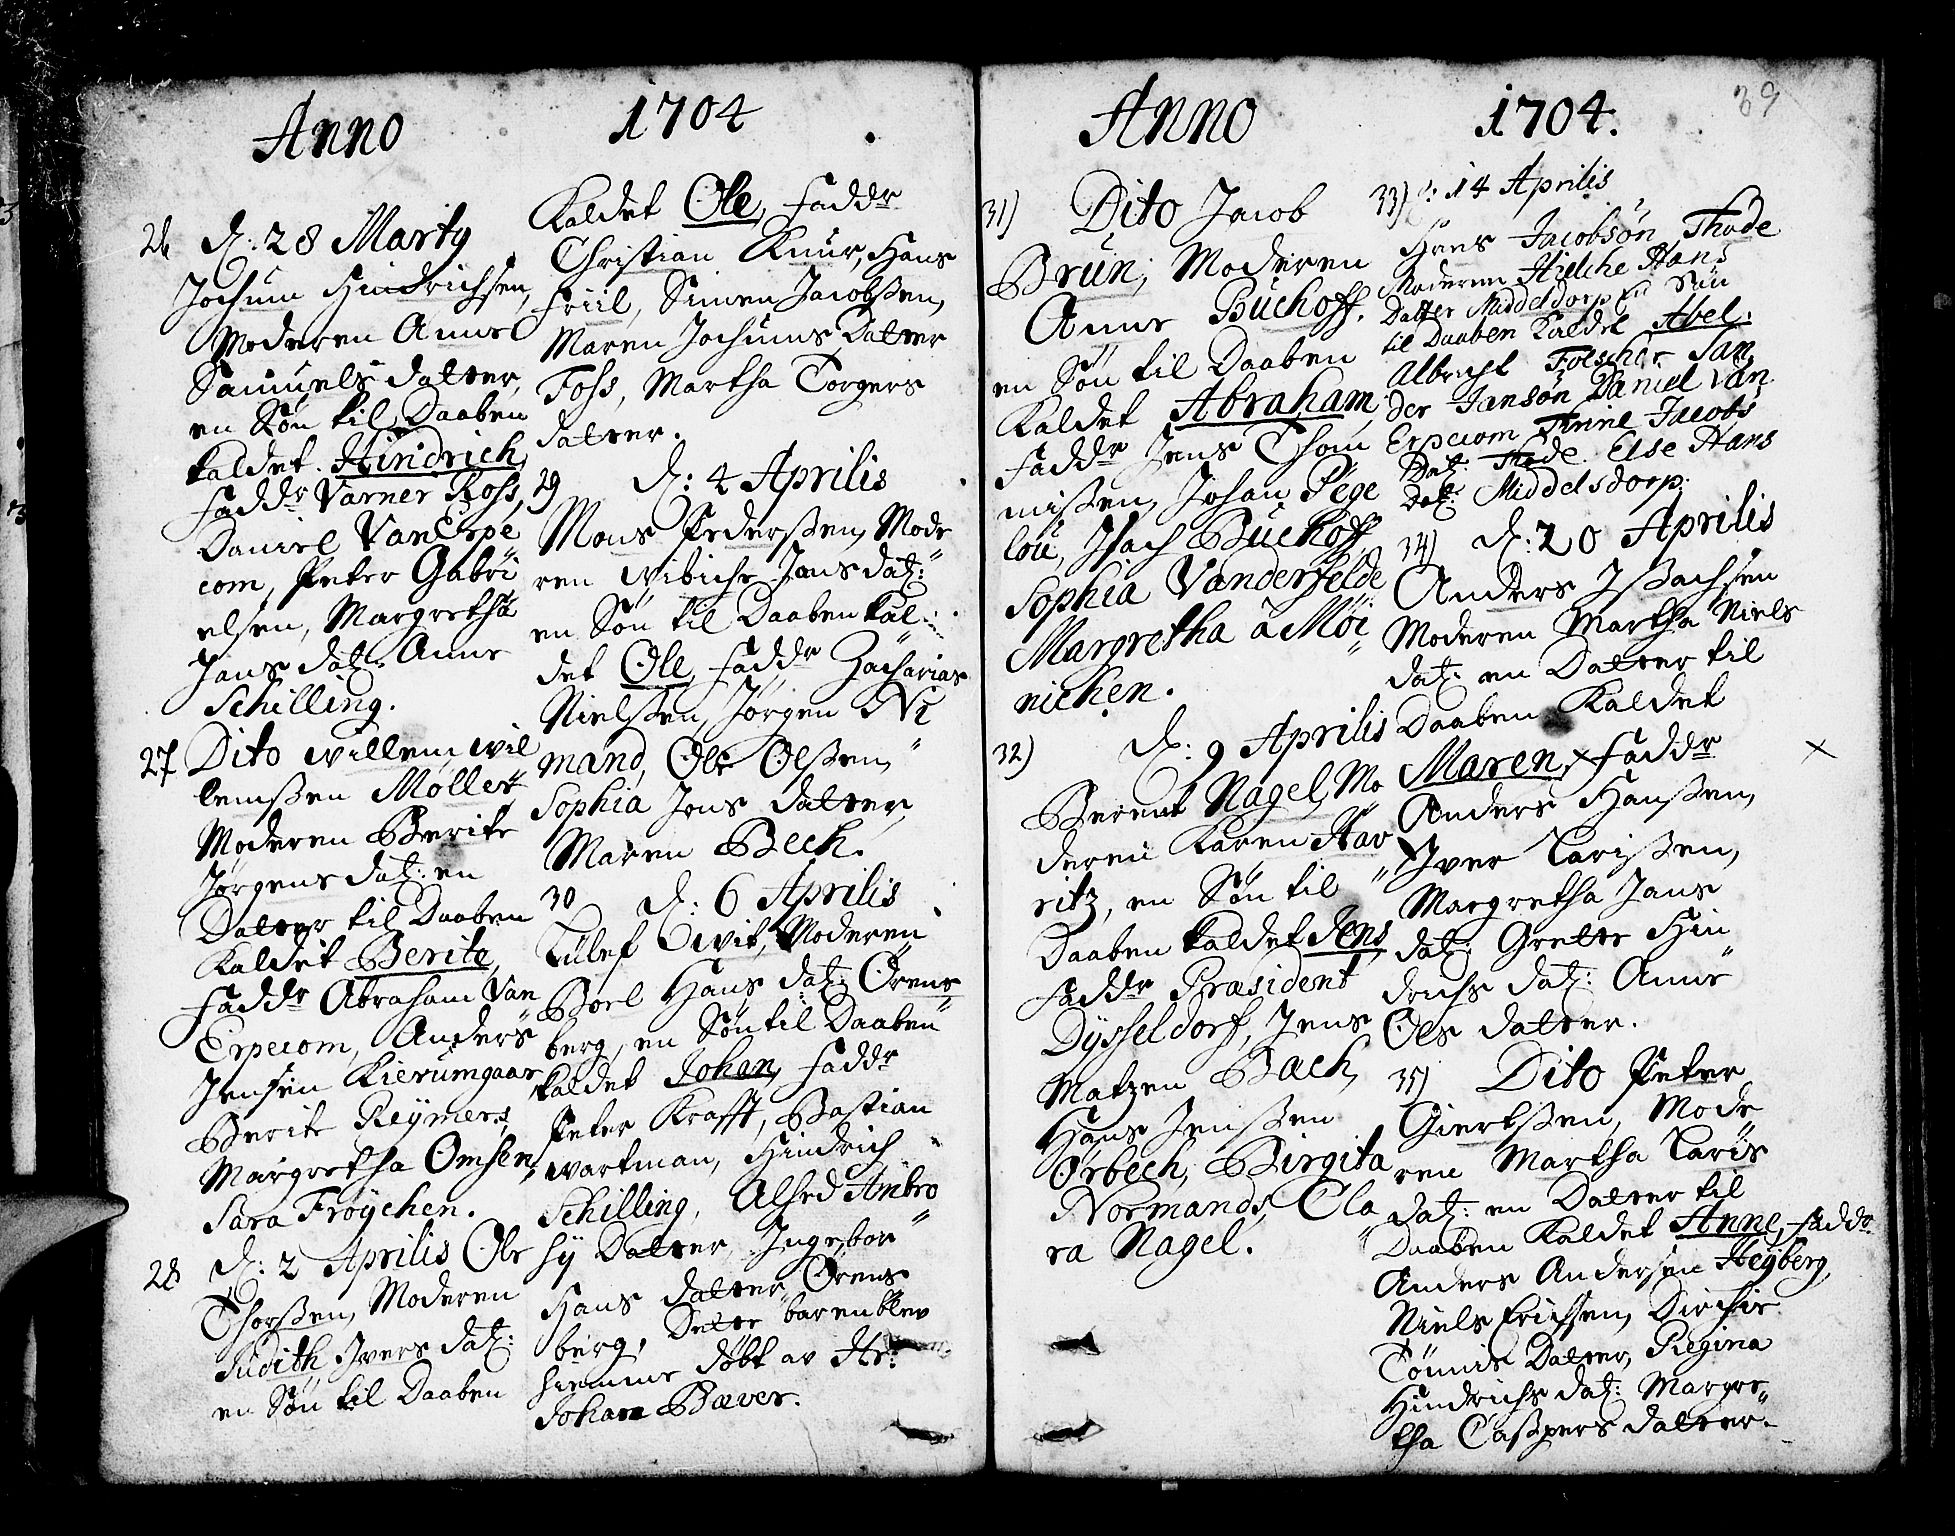 Anno 1704
26 D: 28 Marty
Jochum Hindrichsen,
Moderen Anne
Samuels datter,
en Søn til Daaben
kaldet Hindrich,
Faddr Varner Ross,
Daniel VanErpe
com, Peter Gabri
elsen, Margretha
Jans dat: Anne
Schilling.
27 Dito Willem Wil
lemßen Møller
Moderen Berite
Jørgens dat: en
Datter til Daaben
Kaldet Berite,
Faddr Abraham Van
Erpecom, Anders
Jensen Kierumgaar
Berite Reymers,
Margretha Omsen,
Sara Frøychen.
28 D: 2 Aprilis Ole
Thorßen, Moderen
Judith Ivers dat:
en Søn til Daaben
Kaldet Ole, Faddr
Christian Knur, Hans
Friil, Simen Jacobßen,
Maren Jochums Datter
Foss, Martha Torgers
datter.
29 D: 4 Aprilis
Mons Pederßen, Mode
ren Wibiche Jans dat:
en Søn til Daaben kal
det Ole, Faddr Zacharias
Nielßen, Jørgen Ni
mand, Ole Olßen,
Sophia Jens datter,
Maren Bech.
30 D: 6 Aprilis
Lulef Wit, Moderen
Boel Hans dat: Ørens
berg, en Søn til Daaben
kaldet Johan, Faddr
Peter Krafft, Bastian
Wortman, Hindrich
Schilling, Alhed Ambro
sy Datter, Ingebor
Hans datter Ørens
berg, Dette barn blev
hiemme døbt av Hr:
Johan Bæver.
Anno 1704. 39
31) Dito Jacob
Brun, Moderen
Anne Buchoff.
en Søn til Daaben
Kaldet Abraham,
Faddr Jens Thom
mißen, Johan Pege
lou, Isach Buchoff
Sophia Vanderfelde
Margretha a Møi
nichen.
32) D: 9 Aprilis
Berent Nagel, Mo
deren Karen Hav
ritz, en Søn til
Daaben kaldet Jens,
Faddr Præsident
Dysseldorf, Jens
Matzen Bach,
Hans Jenßen
Ørbech, Birgita
Normands, Cla
ra Nagel.
33) D: 14 Aprilis
Hans Jacobsøn Thode
Moderen Hielche Hans
Datter Middelsdorp En Søn
til Daaben Kaldet Abel.
Albrecht Fölscher San
der Jansøn Daniel van
Erpecom Trine Jacobs
Dat: Thode. Else Hans
Dat: Middelsdorp.
34) D: 20 Aprilis
Anders Ißachsen
Moderen Martha Niels
dat: en Datter til
Daaben Kaldet
Maren, x Faddr x
Anders Hanßen,
Iver Larißen,
Margretha Jans
dat: Grette Hin
drichs dat: Anne
Ols datter.
35) Dito Peter
Giertßen, Mode
ren Martha Laris
dat: en Datter til
Daaben Kaldet Anne, Faddr
Anders Andersen Heyberg,
Niels Erichsen, Dirchie
Tönnis Datter, Regina
Hindrichs dat: Margre
tha Caßpers datter.